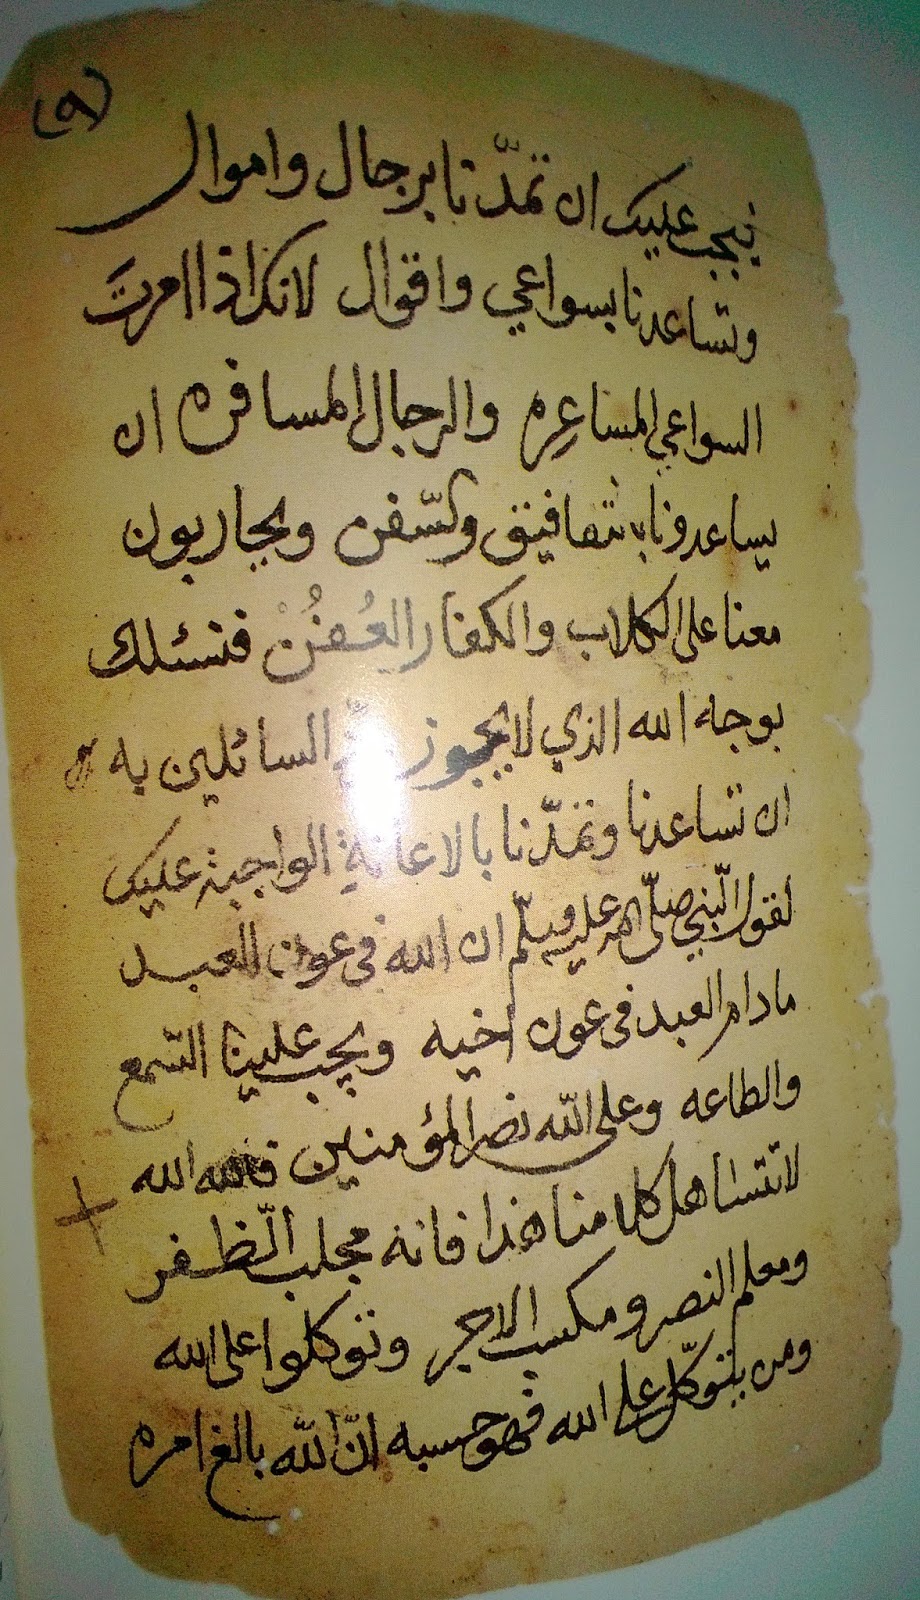 (٩)
يجب عليك ان تمدّنا برجال واموال
وتساعدنا بسواعي واقوال لانك اذا امرتَ
السواعي المساعِره والرجال المسافره ان
يساعدونا وكسّفن ويحاربون
معنا على الكلاب والكفار العُفُنْ فنسئلك
بوجه الله الذي لا يجوز السائلين به
ان تساعدنا وتمدّنا بالاعانةِ الواجبة عليك
لقول النّبي صلّى الله عليه وسلّم ان الله فى عون العبد
مادام العبد فى عون اخيه ويجب علينا السّمع
والطاعه وعلى الله نصر المؤمنين فالله الله
لا تتساهل كلامنا هذا فانه مجلب الظّفر
ومعلم النصر ومكسب الاجر وتوكلوا على الله
ومن يتوكّل على الله فهو حسبه انّ الله بالغ امره